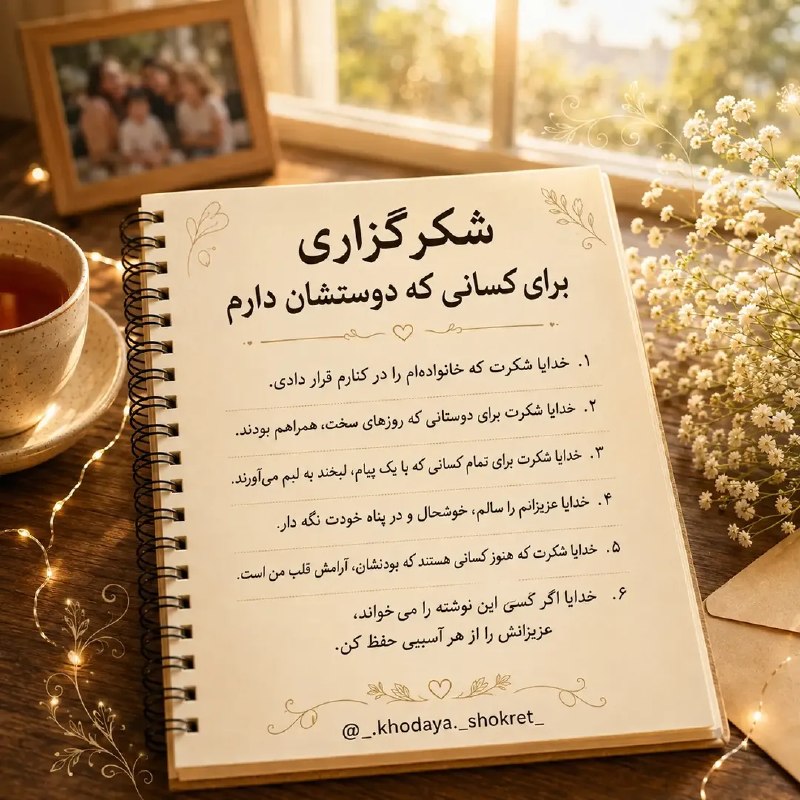 شکرگزاری
برای کسانی که دوستشان دارم
۱. خدایا شکرت که خانواده‌ام را در کنارم قرار دادی.
۲. خدایا شکرت برای دوستانی که روزهای سخت، همراهم بودند.
۳. خدایا شکرت برای تمام کسانی که با یک پیام، لبخند به لبم می‌آورند.
۴. خدایا عزیزانم را سالم، خوشحال و در پناه خودت نگه دار.
۵. خدایا شکرت که هنوز کسانی هستند که بودنشان، آرامش قلب من است.
۶. خدایا اگر کسی این نوشته را می خواند،
عزیزانش را از هر آسیبی حفظ کن.
@_.khodaya._shokret_